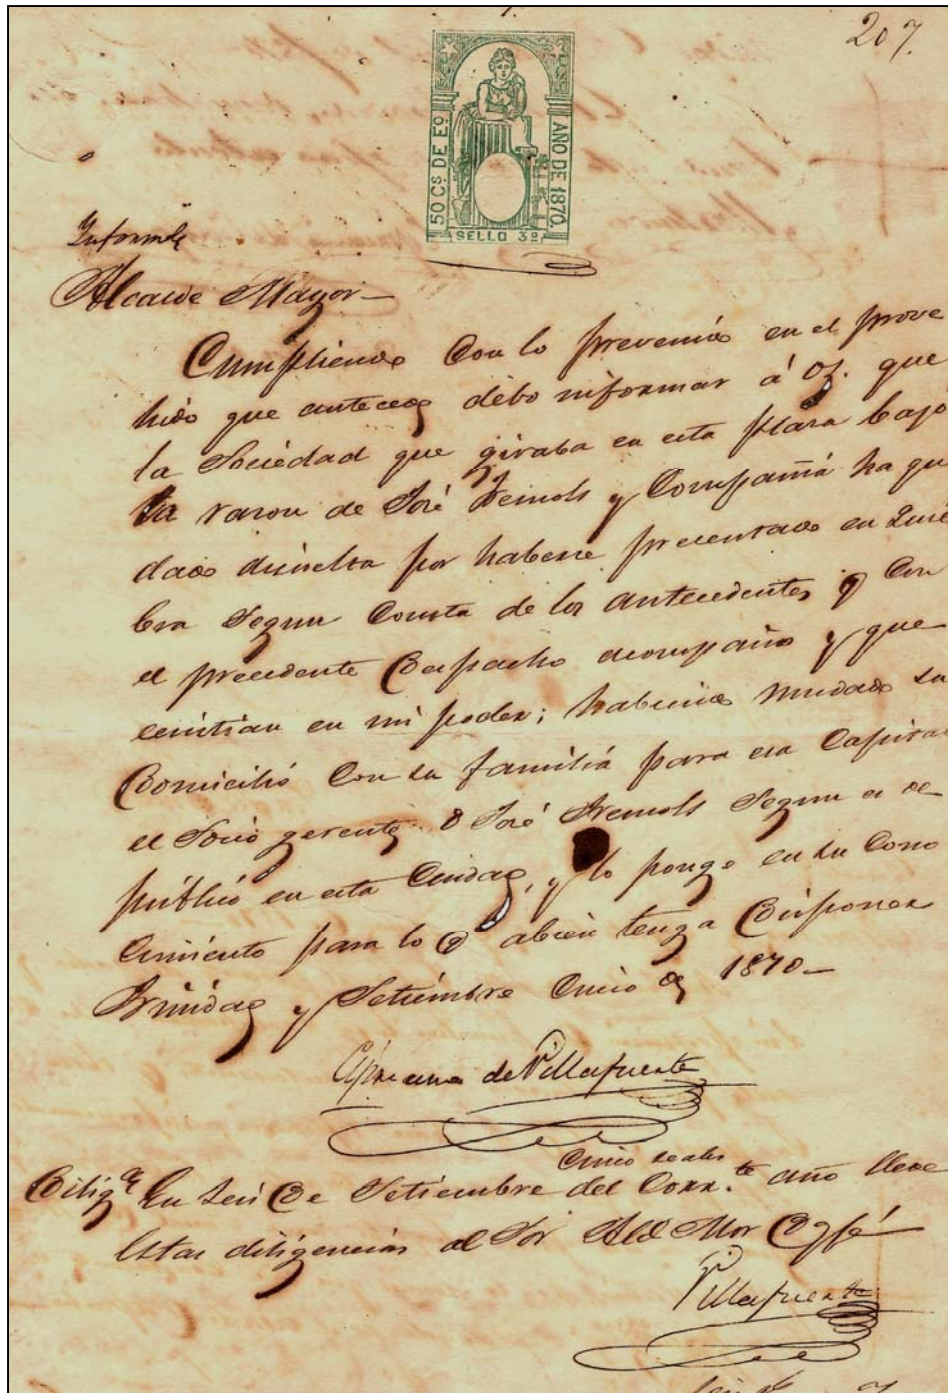 207.
50 Cs. DE Eo. AÑO DE 1870.
SELLO 3º
Informe
Alcalde Mayor—
Cumpliendo Con lo prevenido en el prove
hido que antecede debo informar á que
la Sociedad que giraba en esta plasa bajo
la rason de José y Compañiá ha que
dado disuelta por haberse precentado en Quie
bra Segun Consta de los antecedentes q Con
el precedente Despacho acompaño y que
ecsistian en mi poder; habiendo mudado su
Domicilió Con su familiá para esa Capital
el Sociò gerente D José Segun es de
publicò en esta Ciudad, y lo pongo en su Cono
Cimiento para lo q abien tenga Disponer
Trinidad y Setiembre Cinco de 1870—
Cipriano de Villafuerte
Cinco reales
Diliga En Seis de Setiembre del Corr.te año lleve
estas diligencias al Sor Alde Mor Doyfé
Villafuerte